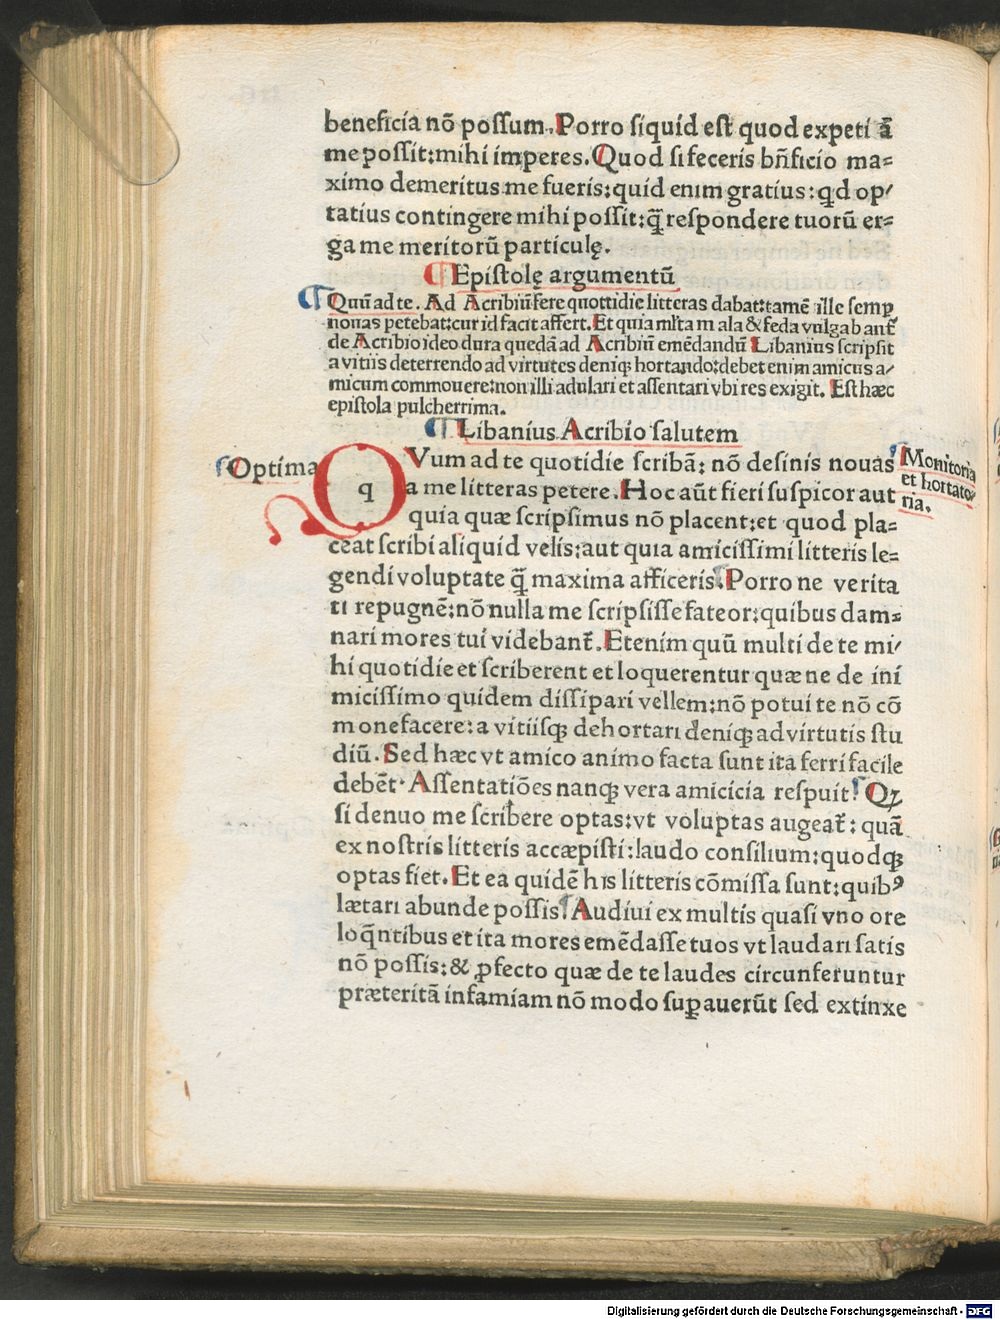 beneficia nõ possum. Porro siquid est quod expeti ã
me possit: mihi imperes. Quod si feceris bñficio ma=
ximo demeritus me fueris: quid enim gratius: qd op/
tatius contingere mihi possit: q̃ respondere tuorũ er=
ga me meritorũ particulę.
¶ Epistolę argumentũ
¶ Quũ ad te. Ad Acribiũ fere quottidie litteras dabat: tamẽ ille semp
nouas petebat: cur id facit affert. Et quia mlta mala & feda vulgabant̃
de Acribio ideo dura quedã ad Acribiũ emẽdandũ Libanius scripsit
a vitiis deterrendo ad virtutes deniqꝫ hortando: debet enim amicus a/
micum commouere: non illi adulari et assentari vbi res exigit. Est hæc
epistola pulcherrima.
¶ Libanius Acribio salutem
Optima
QVum ad te quotidie scribã: nõ desinis nouas
a me litteras petere. Hoc aũt fieri suspicor aut
quia quæ scripsimus nõ placent: et quod pla=
ceat scribi aliquid velis: aut quia amicissimi litteris le=
gendi voluptate q̃ maxima afficeris. Porro ne verita
ti repugnẽ: nõ nulla me scripsisse fateor: quibus dam=
nari mores tui videbant̃. Etenim quũ multi de te mi/
hi quotidie et scriberent et loquerentur quæ ne de ini
micissimo quidem dissipari vellem: nõ potui te nõ cõ
monefacere: a vitiisqꝫ dehortari deniqꝫ ad virtutis stu
diũ. Sed hæc vt amico animo facta sunt ita ferri facile
debẽt. Assentatiões nanqꝫ vera amicicia respuit. Qꝫ
si denuo me scribere optas: vt voluptas augeat̃: quã
ex nostris litteris accæpisti: laudo consilium: quodqꝫ
optas fiet. Et ea quidẽ his litteris cõmissa sunt: quibꝰ
lætari abunde possis. Audiui ex multis quasi vno ore
loq̃ntibus et ita mores emẽdasse tuos vt laudari satis
nõ possis: & ꝓfecto quæ de te laudes circunferuntur
præteritã infamiam nõ modo suꝑauerũt sed extinxe
q
Monitoria
et hortato/
ria.
Digitalisierung gefördert durch die Deutsche Forschungsgemeinschaft - DFG